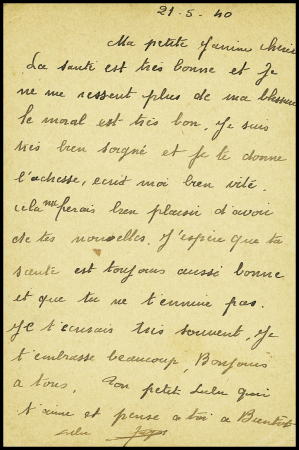 21-5-40
Ma petite Janine chérie
La santé est très bonne et Je
ne me ressent plus de ma blessure
le moral est très bon, Je suis
très bien soigné et je te donne
l'adresse, ecrit moi bien vite.
cela me ferais bien plaisir d'avoir
de tes nouvelles. J'espère que ta
santé est toujours aussi bonne
et que tu ne t'ennuie pas.
JE t'ecrirais très souvent, Je
t'embrasse beaucoup, Bonjours
a tous. Ton petit Lulu qui
t'aime et pense a toi a Bientôt
Lulu